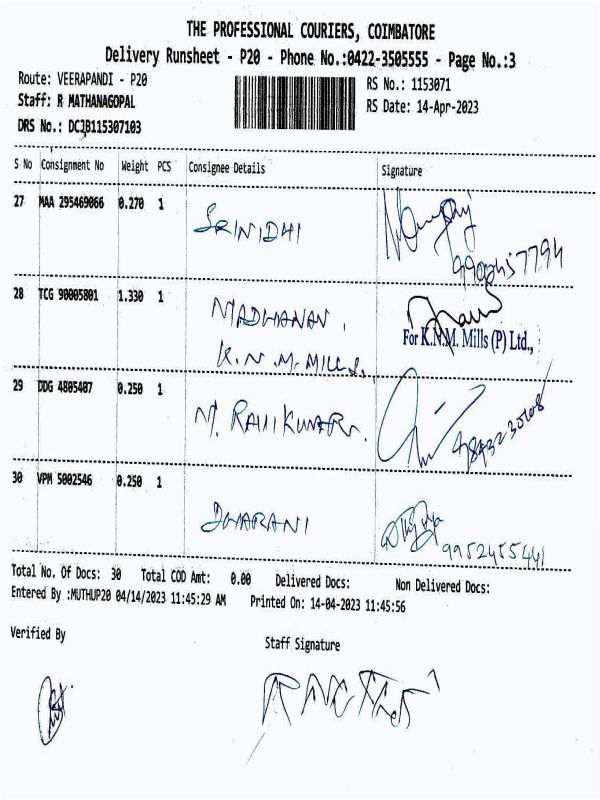 THE PROFESSIONAL COURIERS, COIMBATORE
Delivery Runsheet - P20 - Phone No.:0422-3505555 - Page No.:3
Route: VEERAPANDI - P20
RS No.: 1153071
Staff: R MATHANAGOPAL
RS Date: 14-Apr-2023
DRS No.: DCJB115307103
S No Consignment No Weight PCS Consignee Details Signature
27 MAA 295469066 0.270 1 SRINIDHI
28 TCG 90005801 1.330 1 MADHANAN.
K.N.M. MILLS.
For K.N.M. Mills (P) Ltd.,
29 DDG 4805407 0.250 1 M. RAVIKUMAR.
30 VPM 5002546 0.250 1 DHARANI
9952455441
Total No. Of Docs: 30 Total COD Amt: 0.00 Delivered Docs: Non Delivered Docs:
Entered By :MUTHUP20 04/14/2023 11:45:29 AM Printed On: 14-04-2023 11:45:56
Verified By
Staff Signature